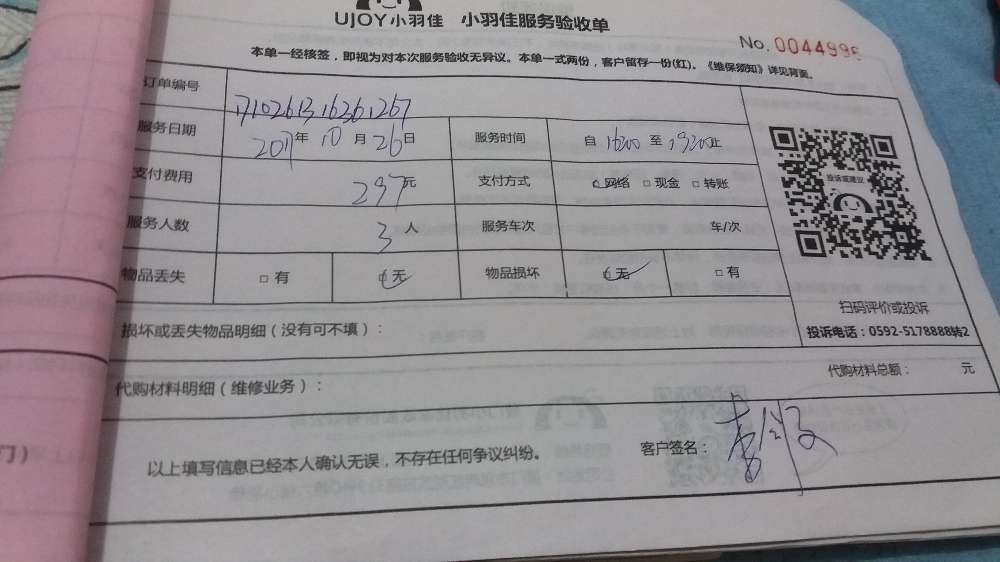 UJOY小羽佳 小羽佳服务验收单
No. 0044996
本单一经核签，即视为对本次服务验收无异议。本单一式两份，客户留存一份(红)。《维保须知》详见背面。
订单编号 1710261316361267
服务日期 2017年10月26日 服务时间 自1620至1920止
支付费用 297元 支付方式 网络 □现金 □转账
服务人数 3人 服务车次 车/次
物品丢失 □有 无 物品损坏 无 □有
投诉或建议
扫码评价或投诉
投诉电话：0592-5178888转2
损坏或丢失物品明细（没有可不填）：
代购材料明细（维修业务）： 代购材料总额： 元
以上填写信息已经本人确认无误，不存在任何争议纠纷。 客户签名：